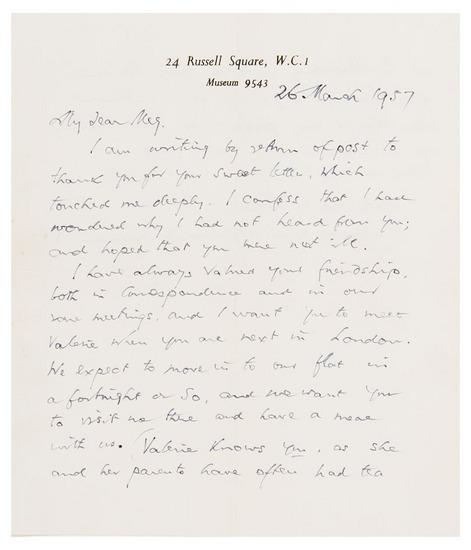 24 Russell Square, W.C.1
Museum 9543
26 March 1957
My dear Meg,
I am writing by return of post to
thank you for your sweet letter, which
touched me deeply. I confess that I had
wondered why I had not heard from you;
and hoped that you were not ill.
I have always valued your friendship,
both in correspondence and in our
rare meetings, and I want you to meet
Valerie when you are next in London.
We expect to move in to our flat in
a fortnight or so, and we want you
to visit us there and have a meal
with us. Valerie knows you, as she
and her parents have often had tea